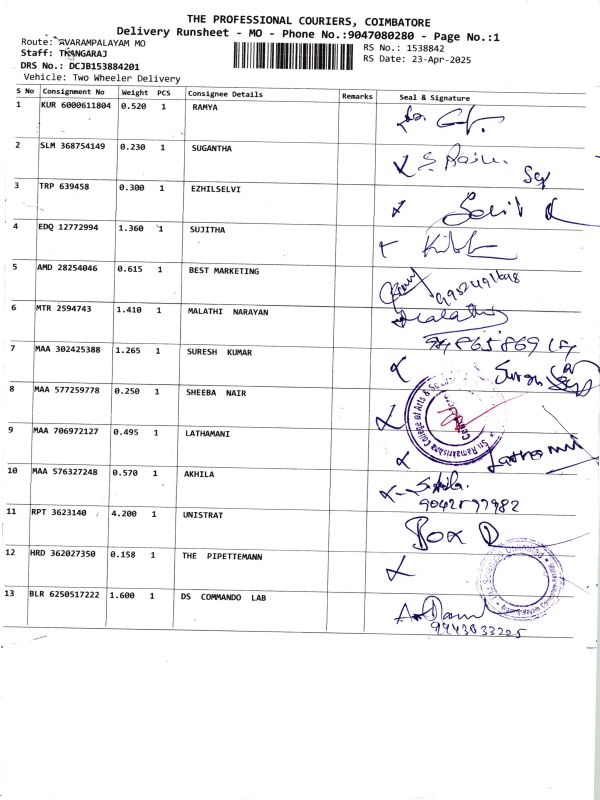 THE PROFESSIONAL COURIERS, COIMBATORE
Delivery Runsheet - MO - Phone No.:9047080280 - Page No.:1
Route: AVARAMPALAYAM MO
RS No.: 1538842
Staff: THANGARAJ
RS Date: 23-Apr-2025
DRS No.: DCJB153884201
Vehicle: Two Wheeler Delivery
S No Consignment No Weight PCS Consignee Details Remarks Seal & Signature
1 KUR 6000611804 0.520 1 RAMYA
2 SLM 368754149 0.230 1 SUGANTHA
3 TRP 639458 0.300 1 EZHILSELVI
4 EDQ 12772994 1.360 1 SUJITHA
5 AMD 28254046 0.615 1 BEST MARKETING
6 MTR 2594743 1.410 1 MALATHI NARAYAN Malathi
7 MAA 302425388 1.265 1 SURESH KUMAR
8 MAA 577259778 0.250 1 SHEEBA NAIR
Sri Ramakrishna College of Arts &
9 MAA 706972127 0.495 1 LATHAMANI
10 MAA 576327248 0.570 1 AKHILA
11 RPT 3623140 4.200 1 UNISTRAT Box
12 HRD 362027350 0.158 1 THE PIPETTEMANN
13 BLR 6250517222 1.600 1 DS COMMANDO LAB
9443833225